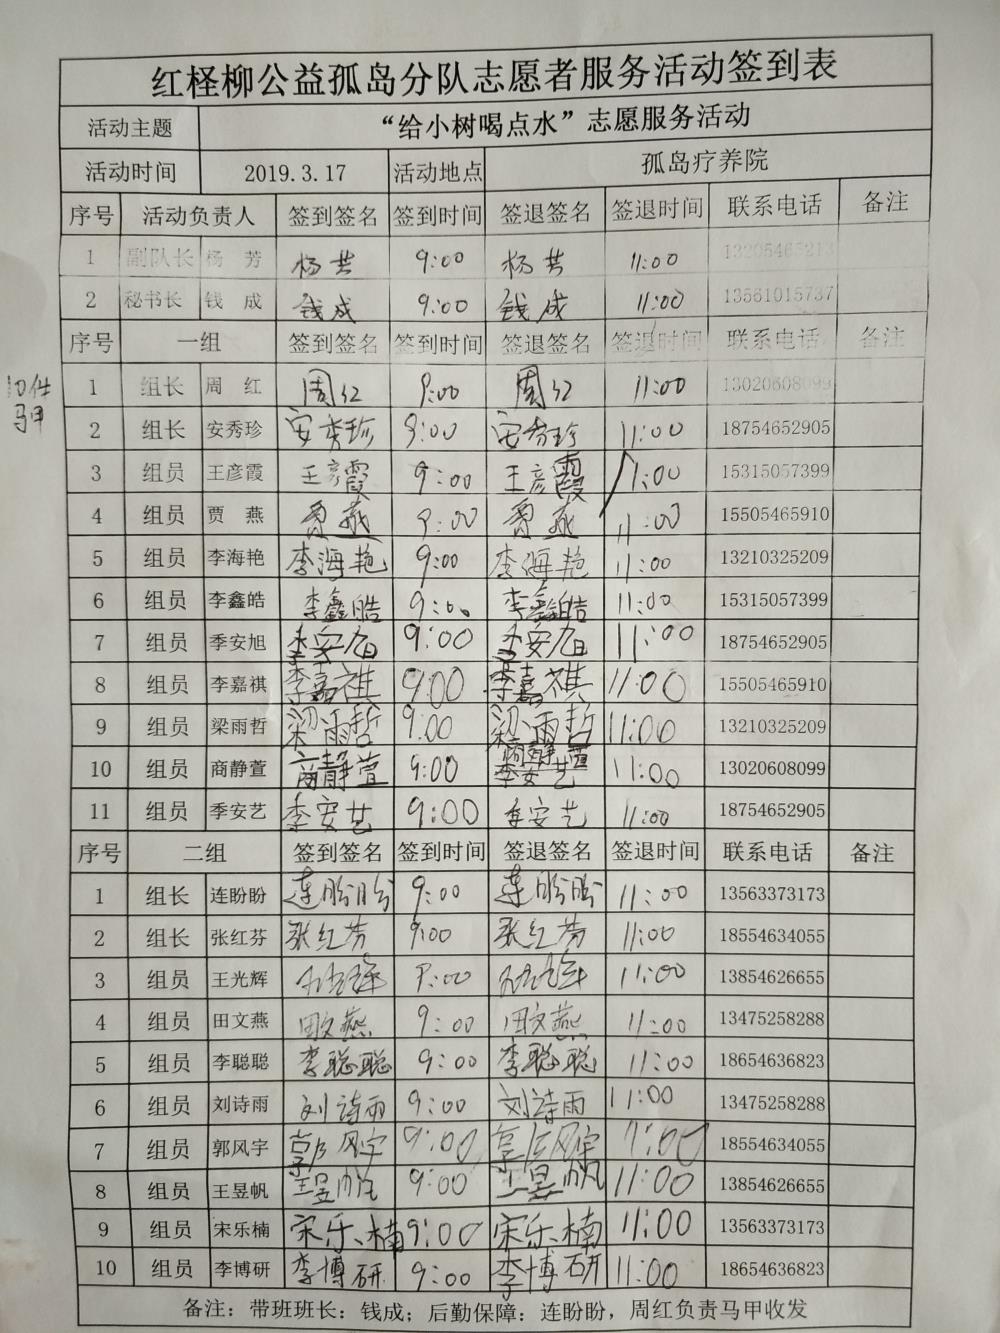 红柽柳公益孤岛分队志愿者服务活动签到表
活动主题 “给小树喝点水”志愿服务活动
活动时间 2019.3.17 活动地点 孤岛疗养院
序号 活动负责人 签到签名 签到时间 签退签名 签退时间 联系电话 备注
1 副队长 杨 芳 杨芳 9:00 杨芳 11:00
2 秘书长 钱 成 钱成 9:00 钱成 11:00 13561015737
序号 一组 签到签名 签到时间 签退签名 签退时间 联系电话 备注
10件
马甲
1 组长 周 红 周红 9:00 周红 11:00 13020608099
2 组长 安秀珍 安秀珍 9:00 安秀珍 11:00 18754652905
3 组员 王彦霞 王彦霞 9:00 王彦霞 11:00 15315057399
4 组员 贾 燕 贾燕 9:00 贾燕 11:00 15505465910
5 组员 李海艳 李海艳 9:00 李海艳 11:00 13210325209
6 组员 李鑫皓 李鑫皓 9:00 李鑫皓 11:00 15315057399
7 组员 季安旭 季安旭 9:00 季安旭 11:00 18754652905
8 组员 李嘉祺 李嘉祺 9:00 李嘉祺 11:00 15505465910
9 组员 梁雨哲 梁雨哲 9:00 梁雨哲 11:00 13210325209
10 组员 商静萱 商静萱 9:00 商静萱 季安艺 11:00 13020608099
11 组员 季安艺 季安艺 9:00 季安艺 11:00 18754652905
序号 二组 签到签名 签到时间 签退签名 签退时间 联系电话 备注
1 组长 连盼盼 连盼盼 9:00 连盼盼 11:00 13563373173
2 组长 张红芬 张红芬 9:00 张红芬 11:00 18554634055
3 组员 王光辉 王光辉 9:00 王光辉 11:00 13854626655
4 组员 田文燕 田文燕 9:00 田文燕 11:00 13475258288
5 组员 李聪聪 李聪聪 9:00 李聪聪 11:00 18654636823
6 组员 刘诗雨 刘诗雨 9:00 刘诗雨 11:00 13475258288
7 组员 郭风宇 郭风宇 9:00 郭风宇 11:00 18554634055
8 组员 王昱帆 王昱帆 9:00 王昱帆 11:00 13854626655
9 组员 宋乐楠 宋乐楠 9:00 宋乐楠 11:00 13563373173
10 组员 李博研 李博研 9:00 李博研 11:00 18654636823
备注：带班班长：钱成；后勤保障：连盼盼，周红负责马甲收发